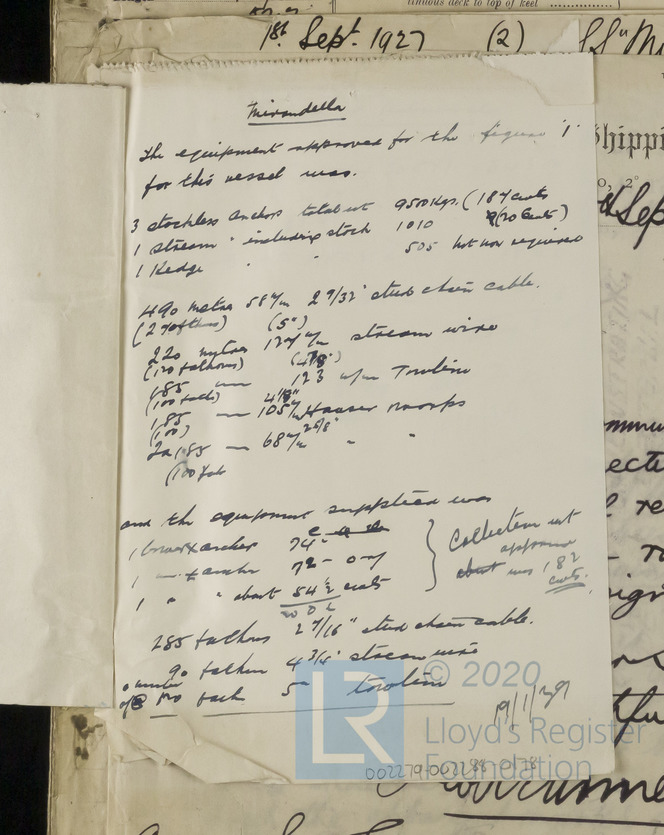 tinuous deck to top of keel
1st. Sept. 1927 (2) SS "Mi
Shippi
Sep
Mirandella
The equipment approved for the figure '1'
for this vessel was.
3 stockless anchors total wt 9500 kgs. (187 cwts
1 stream " including stock 1010 (20 cwts)
1 Kedge " " 505 but now required
490 metres 58 m/m 2 9/32" stud chain cable.
(5")
220 metres 127 m/m stream wire
(120 fathoms)
185 — 123 m/m Towline
1,85 — 105 m/m Hawser
(100)
2 a 185 — 68 m/m " "
(100 fath
and the equipment supplied was
1 bower anchor 74"
1 — anchor 72 - 0 - 7
1 " " about 54 1/2 cwts
Collective wt
approved
about was 182
cwts.
285 fathoms 2 7/16" stud chain cable.
90 fathom 4 3/4" stream wire
120 fath 5" towline
19/1/29
© 2020
LR
Lloyd's Register
Foundation
002279-002288-0178